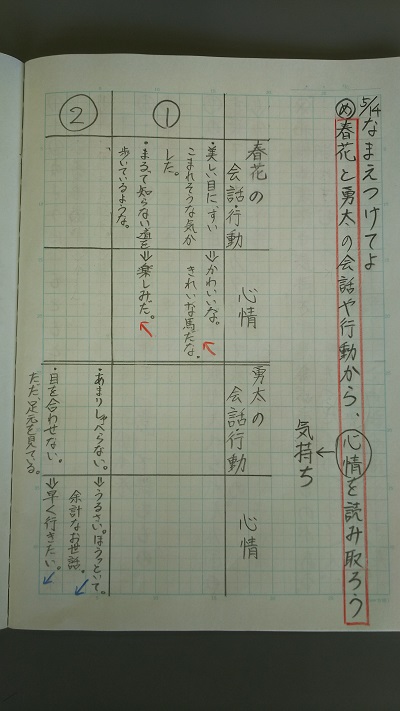 5/14 なまえつけてよ
め 春花と勇太の会話や行動から、心情を読み取ろう
気持ち
春花の
会話・行動
心情
勇太の
会話・行動
心情
①
・美しい目に、すい
こまれそうな気が
した。
⇒かわいいな。
きれいな馬だな。
・まるで知らない道を
歩いているような。
⇒楽しみだ。
②
・あまりしゃべらない。
⇒うるさい。ほうっといて。
余計なお世話。
・目を合わせない。
ただ、足元を見ている。
⇒早く行きたい。